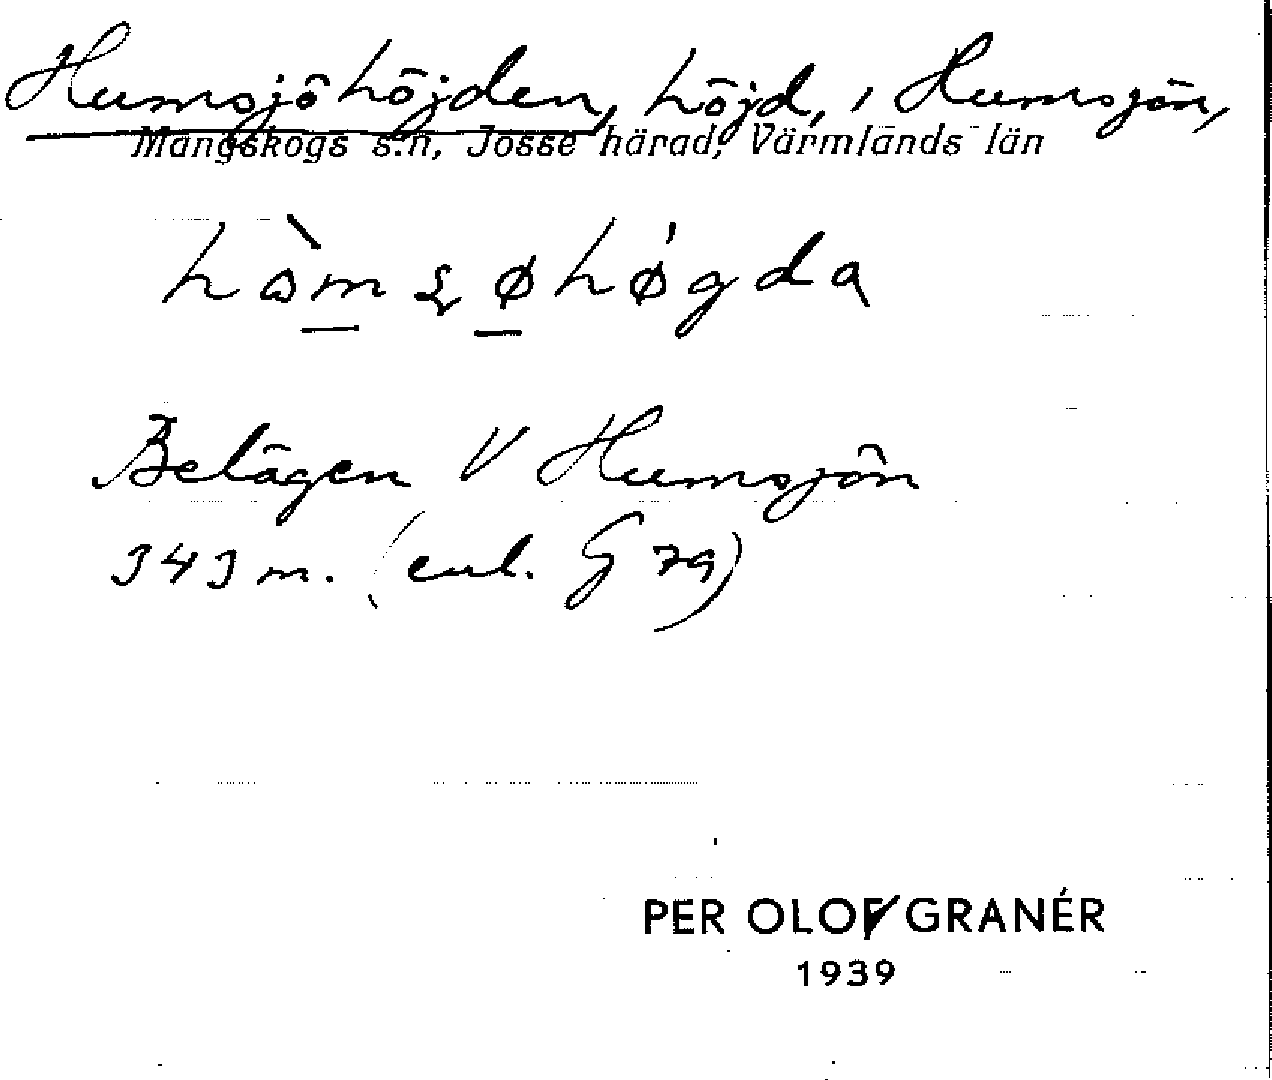 Humsjöhöjden, höjd, i Humsjön,
Mangskogs s:n, Josse härad, Värmlands län
Belägen V Humsjön
343 m. (enl. G 79)
PER OLOF GRANÉR
1939